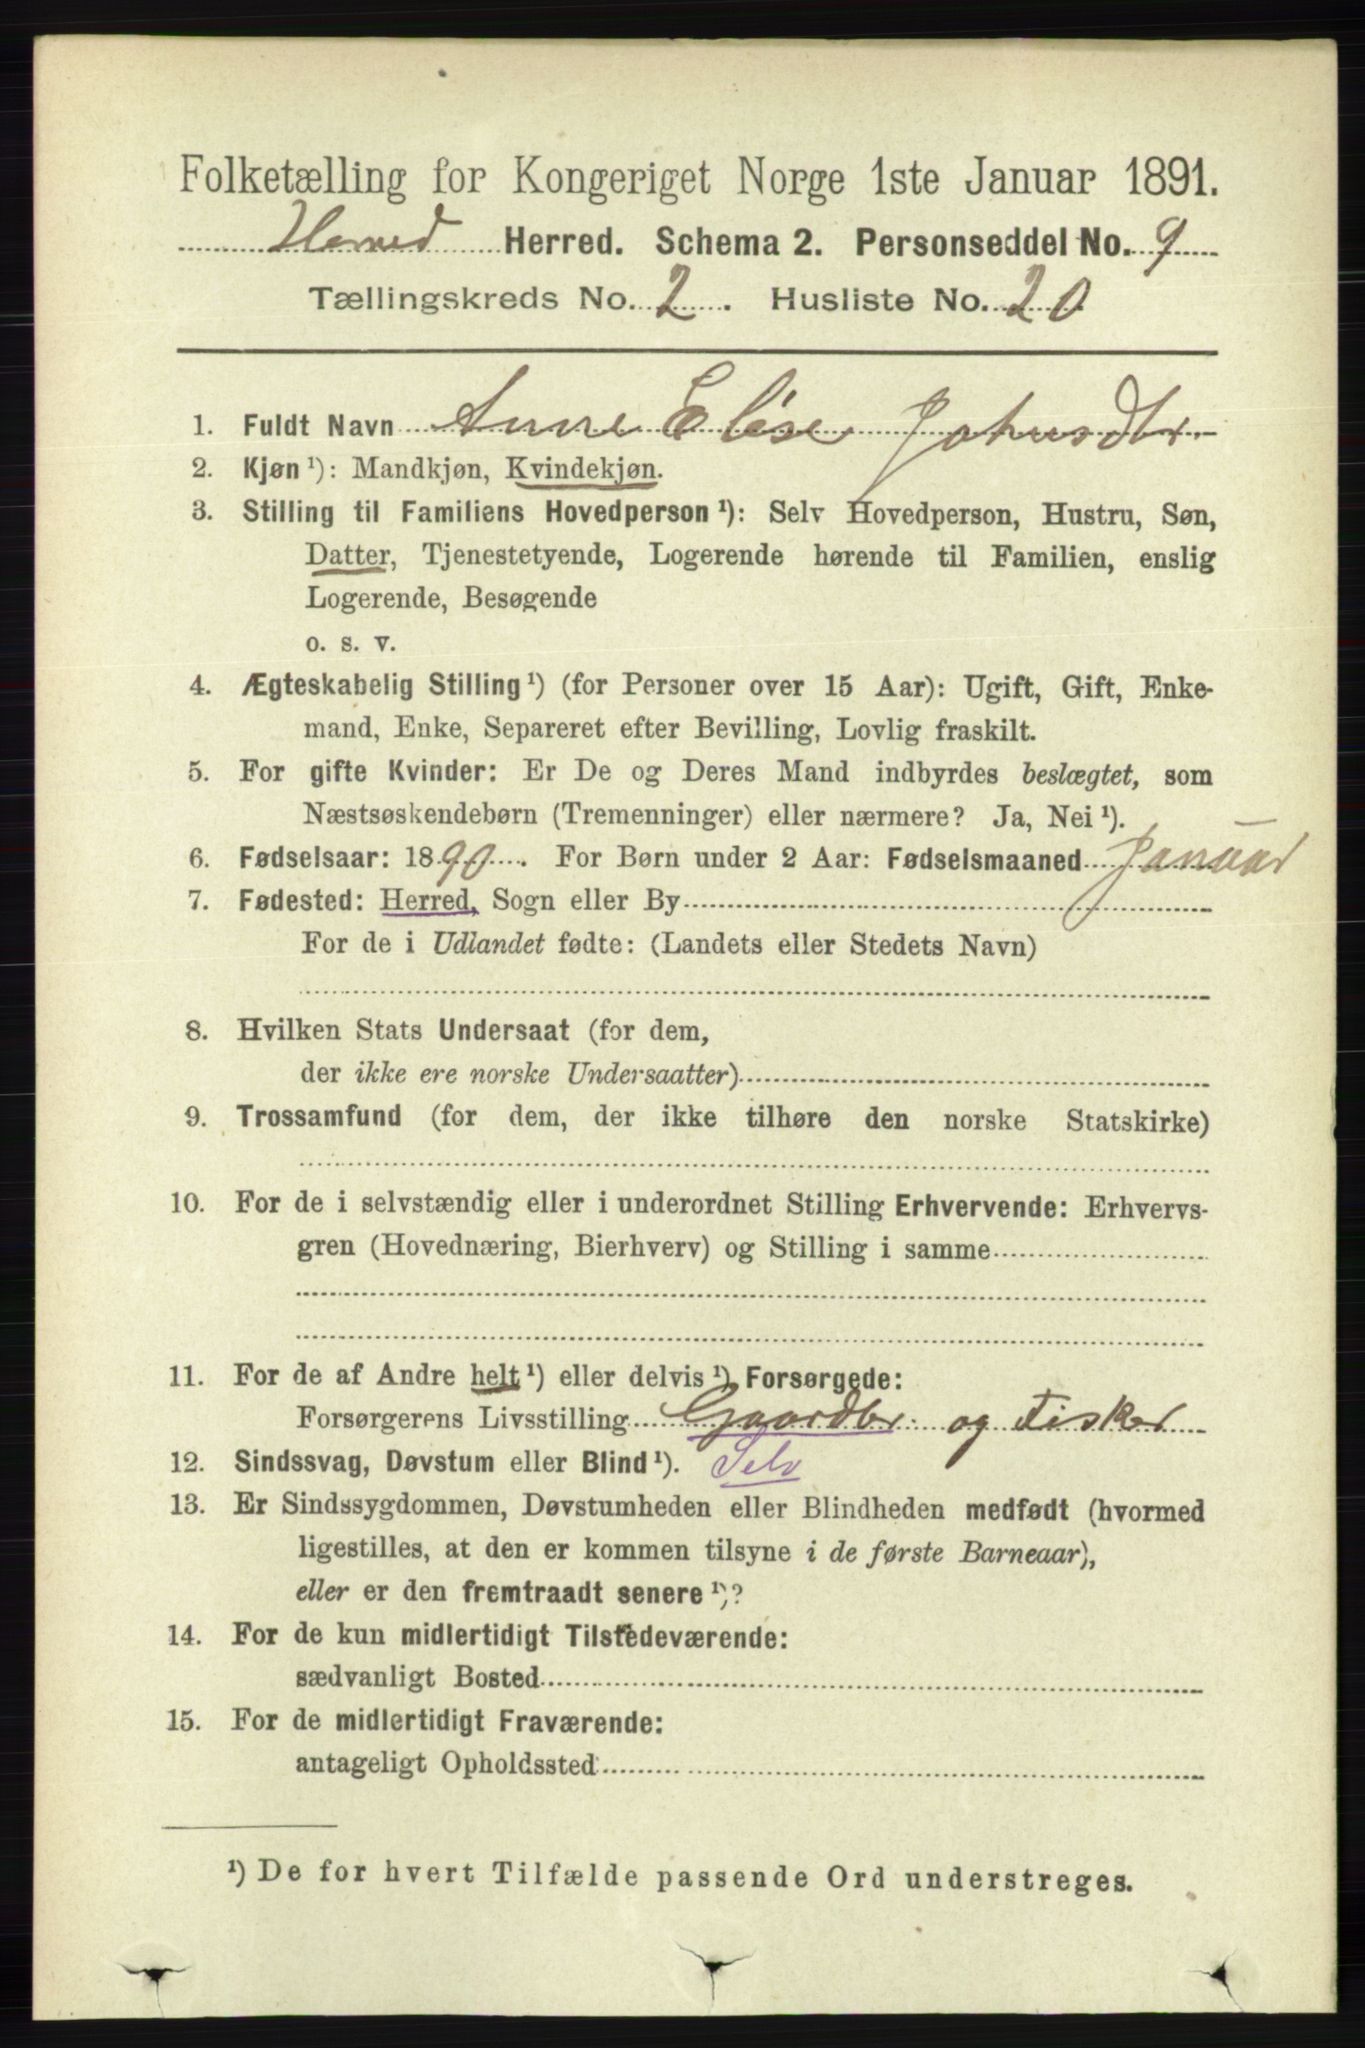 Folketælling for Kongeriget Norge 1ste Januar 1891.
Herred. Schema 2. Personseddel No. 9
Tællingskreds No. 2. Husliste No. 20
1. Fuldt Navn Anne Elise Johnsdtr.
2. Kjøn ¹): Mandkjøn, Kvindekjøn.
3. Stilling til Familiens Hovedperson ¹): Selv Hovedperson, Hustru, Søn,
Datter, Tjenestetyende, Logerende hørende til Familien, enslig
Logerende, Besøgende
o. s. v.
4. Ægteskabelig Stilling ¹) (for Personer over 15 Aar): Ugift, Gift, Enke-
mand, Enke, Separeret efter Bevilling, Lovlig fraskilt.
5. For gifte Kvinder: Er De og Deres Mand indbyrdes beslægtet, som
Næstsøskendebørn (Tremenninger) eller nærmere? Ja, Nei ¹).
6. Fødselsaar: 1890. For Børn under 2 Aar: Fødselsmaaned Januar
7. Fødested: Herred, Sogn eller By
For de i Udlandet fødte: (Landets eller Stedets Navn)
8. Hvilken Stats Undersaat (for dem,
der ikke ere norske Undersaatter)
9. Trossamfund (for dem, der ikke tilhøre den norske Statskirke)
10. For de i selvstændig eller i underordnet Stilling Erhvervende: Erhvervs-
gren (Hovednæring, Bierhverv) og Stilling i samme
11. For de af Andre helt ¹) eller delvis ¹) Forsørgede:
Forsørgerens Livsstilling Gaardbr. og Fisker
12. Sindssvag, Døvstum eller Blind ¹). Selv
13. Er Sindssygdommen, Døvstumheden eller Blindheden medfødt (hvormed
ligestilles, at den er kommen tilsyne i de første Barneaar),
eller er den fremtraadt senere ¹)?
14. For de kun midlertidigt Tilstedeværende:
sædvanligt Bosted
15. For de midlertidigt Fraværende:
antageligt Opholdssted
¹) De for hvert Tilfælde passende Ord understreges.